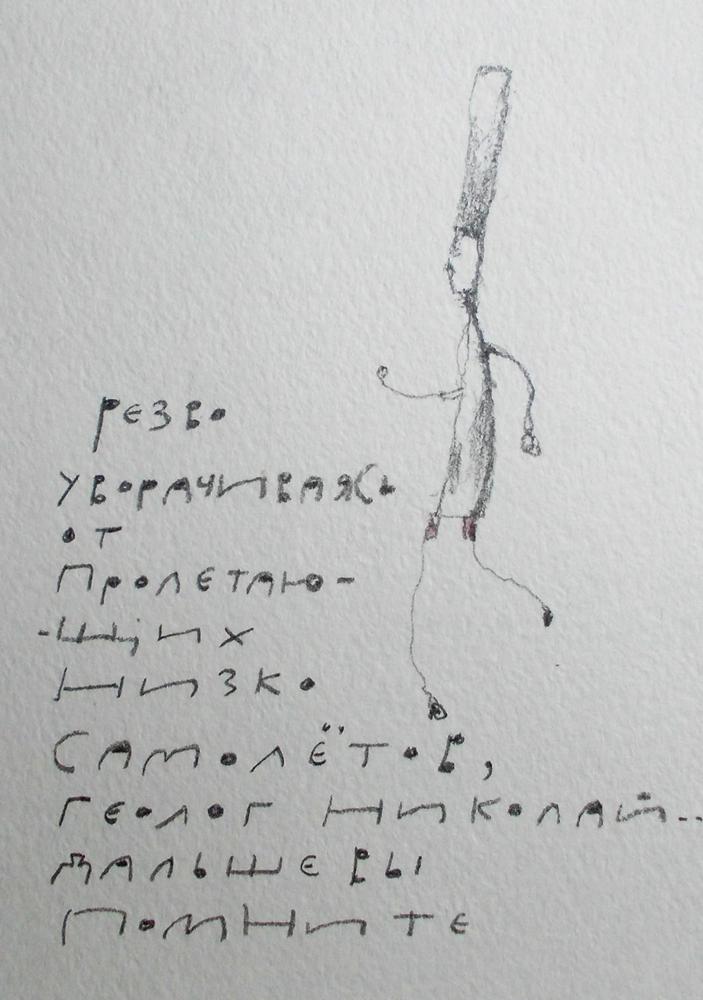 резво
уворачиваясь
от
пролетаю-
-щих
низко
самолётов,
геолог николай..
дальше вы
помните